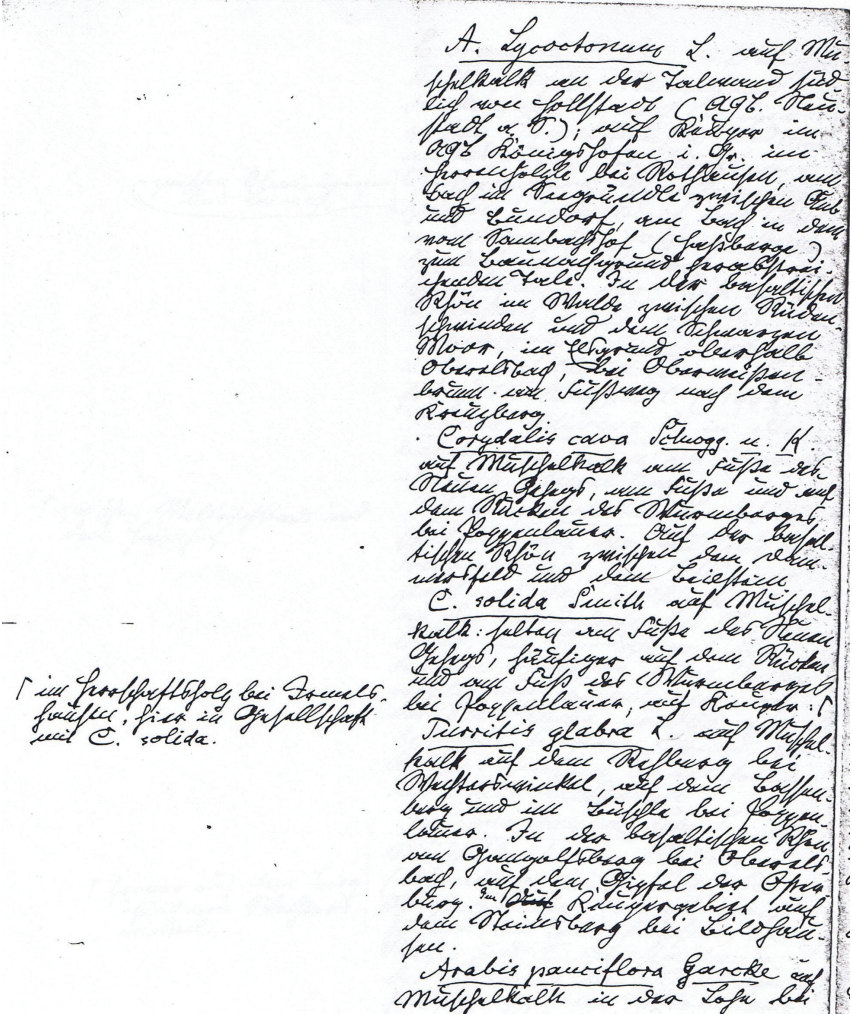 A. Lycoctonum L. auf Mu-
schelkalk an der Talwand süd-
lich von Hollstadt (AGb. Neu-
stadt a. S.); auf Keuper im
AGb Königshofen i. Gr. im
Herrenholze bei Rothausen, am
Bach im Seegründle zwischen Aub
und Bundorf, am Bach in dem
vom Sambachshof (Hassberge)
zum Baunachgrund herabstrei-
chenden Tale. In der basaltischen
Rhön im Walde zwischen Rüden-
schwinden und dem Schwarzen
Moor, im Elsgrund oberhalb
Oberelsbach, bei Oberweißen-
brunn am Fußweg nach dem
Kreuzberg.
Corydalis cava Schwgg. u. K.
auf Muschelkalk am Fuße des
Neuen Gehegs, am Fuße und auf
dem Rücken des Wurmberges
bei Poppenlauer. Auf der basal-
tischen Rhön zwischen dem Dam-
mersfeld und dem Beilstein
C. solida Smith auf Muschel-
kalk: selten am Fuße des Neuen
Gehegs, häufiger auf dem Rücken
und am Fuß des Wurmberges
bei Poppenlauer, auf Keuper:
im Herrschaftsholz bei Irmels-
hausen, hier in Gesellschaft
mit C. solida.
Turritis glabra L. auf Muschel-
kalk auf dem Rehberg bei
Wechterswinkel, auf dem
berg und im Büschle bei Poppen-
lauer. In der basaltischen Rhön
am Gangolfsberg bei Oberels-
bach, auf dem Gipfel der Oster-
burg. Im Keupergebiet auf
dem Steinsberg bei Bildhau-
sen.
Arabis pauciflora Garcke auf
Muschelkalk in der Lohe bei